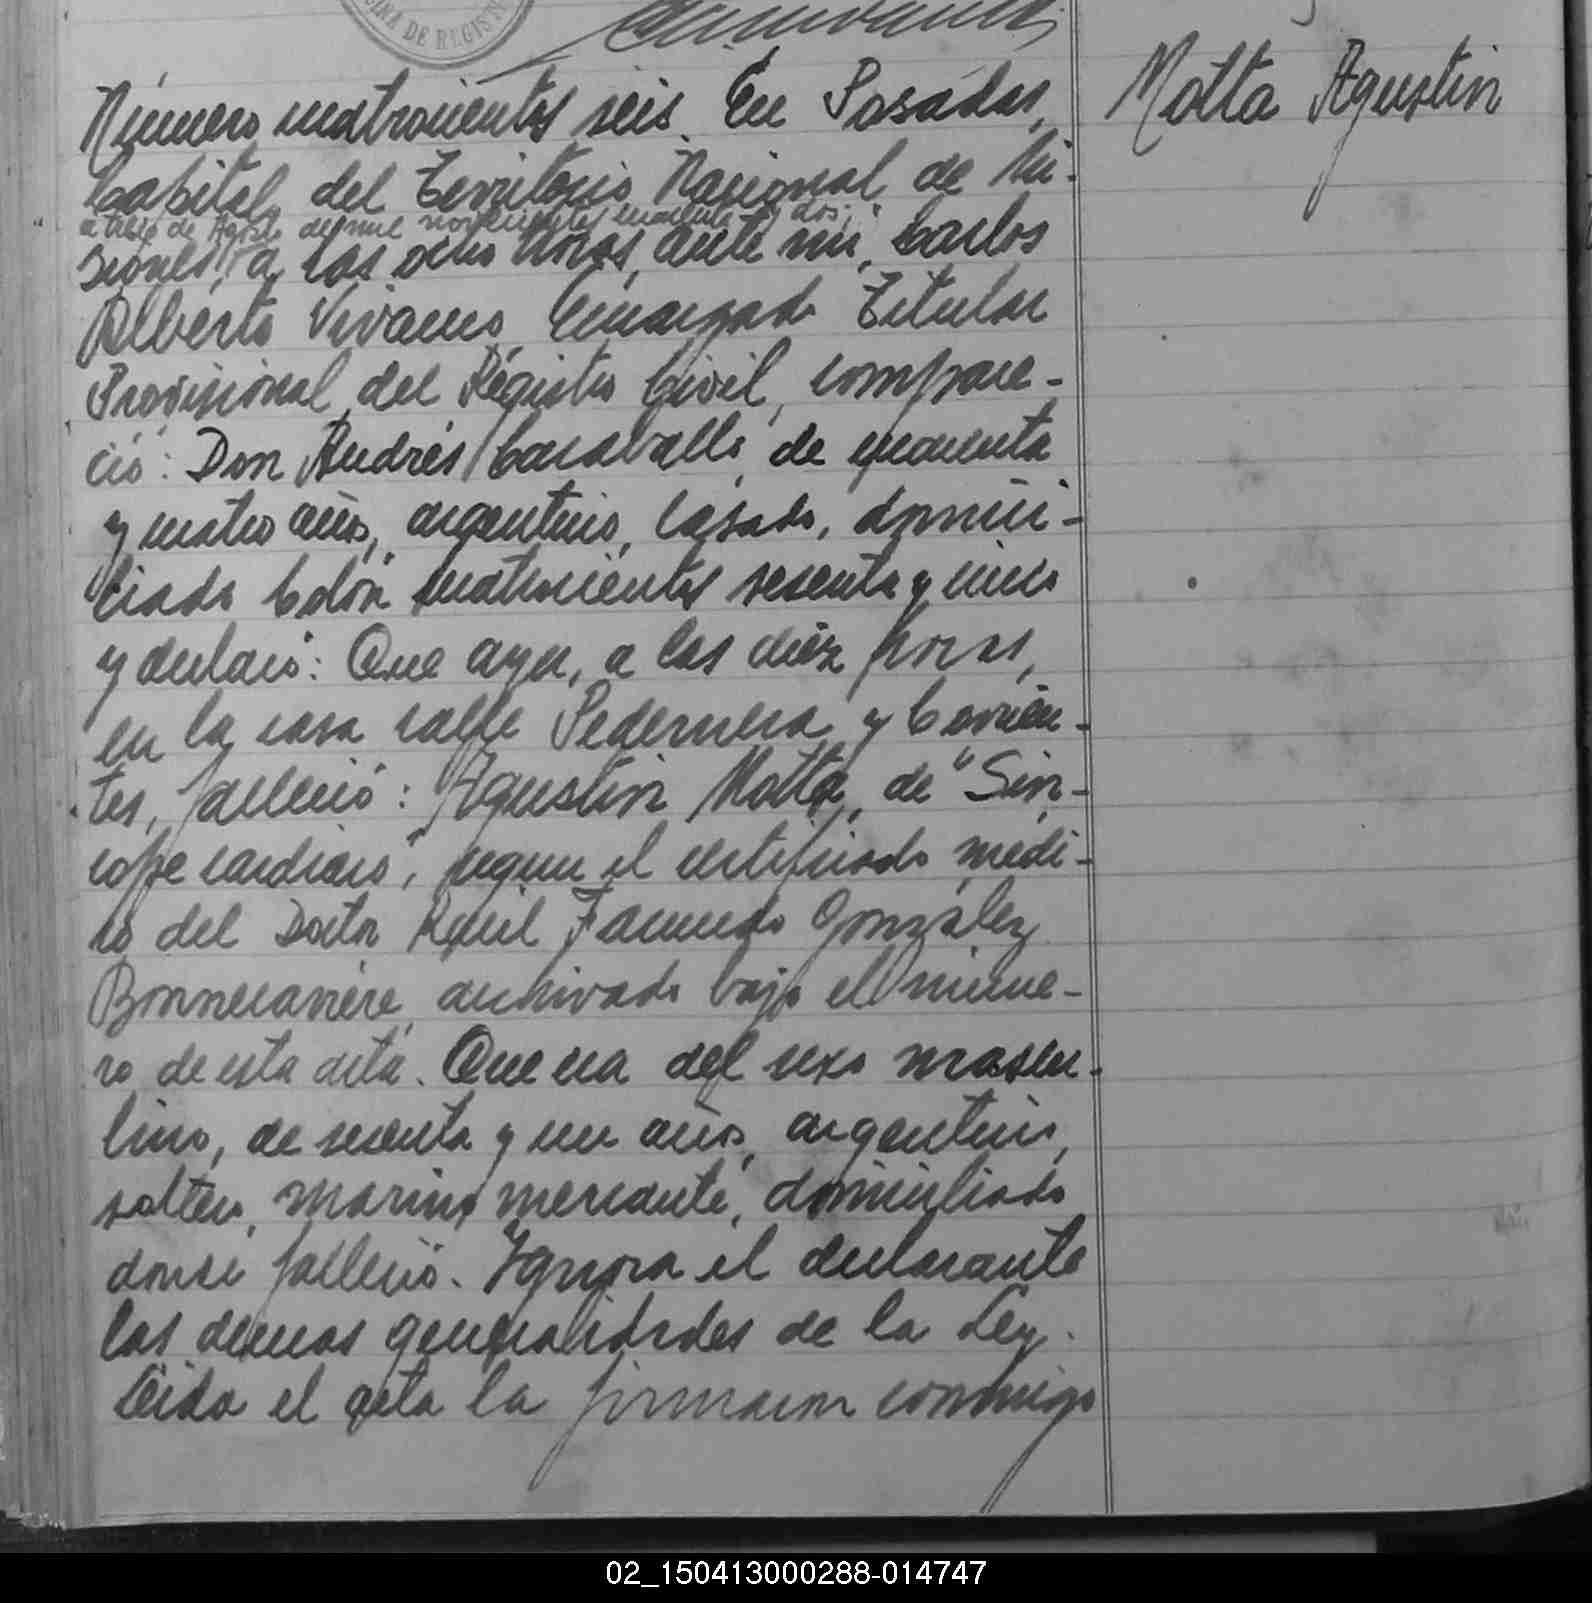 OFICINA DE REGISTRO
Número cuatrocientos seis. En Posadas, Motta Agustin
Capital del Territorio Nacional de Mi-
a trece de Agosto de mil novecientos cuarenta y dos,
siones, a las ocho horas, ante mi, Carlos
Alberto Vivanco, Encargado Titular
Provisional del Registro Civil, compare-
ció: Don Andrés Caraballo, de cuarenta
y cuatro años, argentino, casado, domici-
liado Colón cuatrocientos sesenta y cinco
y declaró: Que ayer, a las diéz horas,
en la casa calle Pedernera y Corrien-
tes, falleció: Agustin Motta, de "Sin-
cope cardiaco", segun el certificado medi-
co del Doctor Raúl Facundo González
Bonnecarrére archivado bajo el núme-
ro de esta acta. Que era del sexo mascu-
lino, de sesenta y un años, argentino,
soltero, marino mercante, domiciliado
donde falleció. Ignora el declarante
las demas generalidades de la Ley.
Leida el acta la firmaron conmigo
02_150413000288-014747